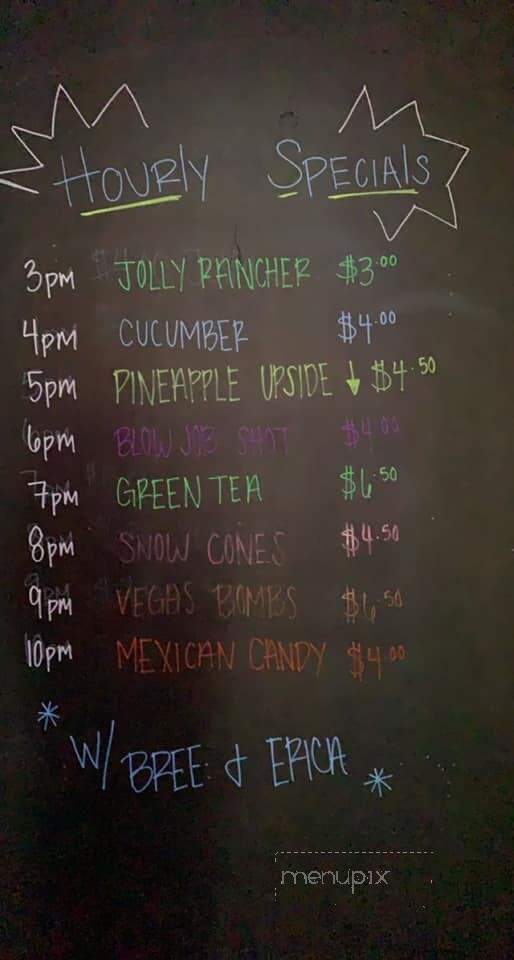 HOURLY SPECIALS
3pm JOLLY RANCHER $3.00
4pm CUCUMBER $4.00
5pm PINEAPPLE UPSIDE ↓ $4.50
6pm BLOW JOB SHOT $4.00
7pm GREEN TEA $6.50
8pm SNOW CONES $4.50
9pm VEGAS BOMBS $6.50
10pm MEXICAN CANDY $4.00
* W/ BREE & ERICA *
menupix